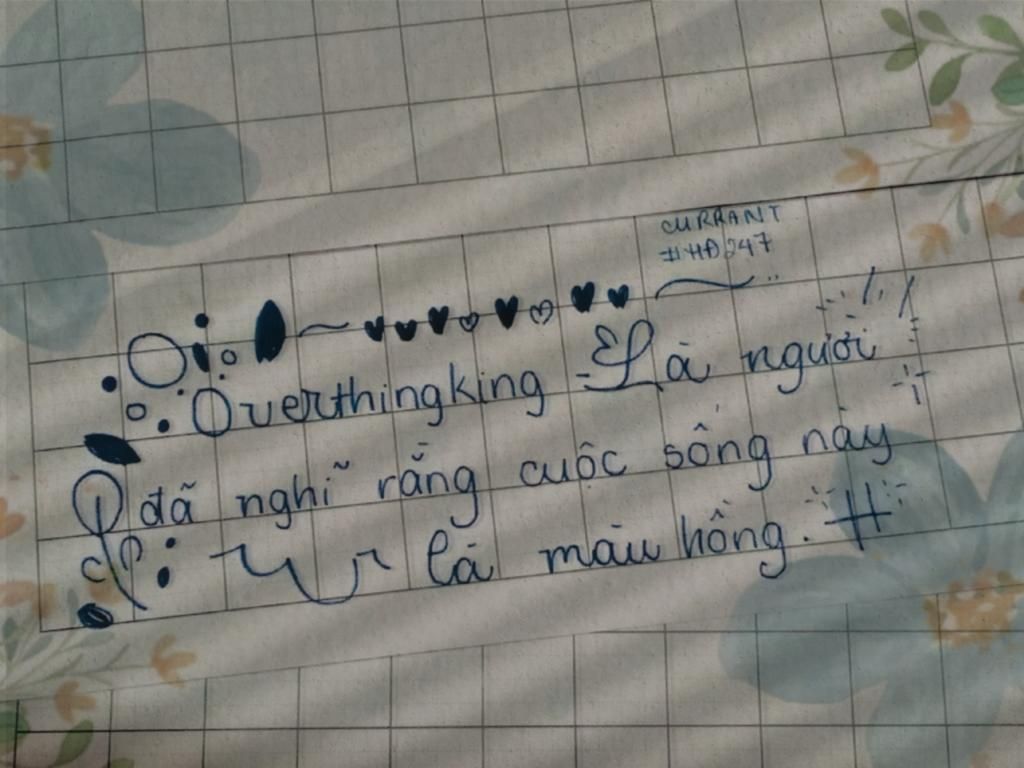 CURRANT
#HĐ247
Overthingking Là người
đã nghĩ rằng cuộc sống này
là màu hồng.